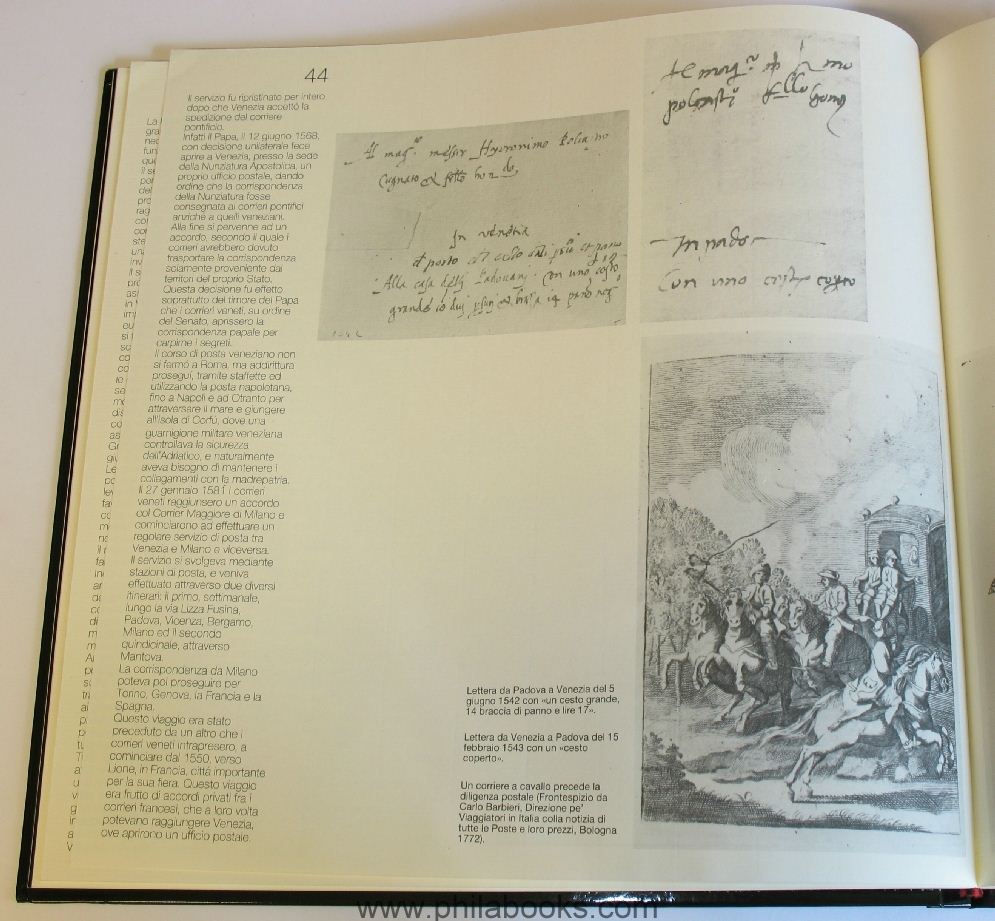 44
Il servizio fu ripristinato per intero
dopo che Venezia accettò la
spedizione del corriere
pontificio.
Infatti il Papa, il 12 giugno 1568,
con decisione unilaterale fece
aprire a Venezia, presso la sede
della Nunziatura Apostolica, un
proprio ufficio postale, dando
ordine che la corrispondenza
della Nunziatura fosse
consegnata ai corrieri pontifici
anziché a quelli veneziani.
Alla fine si pervenne ad un
accordo, secondo il quale i
corrieri avrebbero dovuto
trasportare la corrispondenza
solamente proveniente dai
territori del proprio Stato.
Questa decisione fu effetto
soprattutto del timore del Papa
che i corrieri veneti, su ordine
del Senato, aprissero la
corrispondenza papale per
carpirne i segreti.
Il corso di posta veneziano non
si fermò a Roma, ma addirittura
proseguì, tramite staffette ed
utilizzando la posta napoletana,
fino a Napoli e ad Otranto per
attraversare il mare e giungere
all'isola di Corfù, dove una
guarnigione militare veneziana
controllava la sicurezza
dell'Adriatico, e naturalmente
aveva bisogno di mantenere i
collegamenti con la madrepatria.
Il 27 gennaio 1581 i corrieri
veneti raggiunsero un accordo
col Corrier Maggiore di Milano e
cominciarono ad effettuare un
regolare servizio di posta tra
Venezia e Milano e viceversa.
Il servizio si svolgeva mediante
stazioni di posta, e veniva
effettuato attraverso due diversi
itinerari: il primo, settimanale,
lungo la via Lizza Fusina,
Padova, Vicenza, Bergamo,
Milano ed il secondo
quindicinale, attraverso
Mantova.
La corrispondenza da Milano
poteva poi proseguire per
Torino, Genova, la Francia e la
Spagna.
Questo viaggio era stato
preceduto da un altro che i
corrieri veneti intrapresero, a
cominciare dal 1550, verso
Lione, in Francia, città importante
per la sua fiera. Questo viaggio
era frutto di accordi privati fra i
corrieri francesi, che a loro volta
potevano raggiungere Venezia,
ove aprirono un ufficio postale.
In venetia
Con uno
Lettera da Padova a Venezia del 5
giugno 1542 con «un cesto grande,
14 braccia di panno e lire 17».
Lettera da Venezia a Padova del 15
febbraio 1543 con un «cesto
coperto».
Un corriere a cavallo precede la
diligenza postale (Frontespizio da
Carlo Barbieri, Direzione pe'
Viaggiatori in Italia colla notizia di
tutte le Poste e loro prezzi, Bologna
1772).
www.philabooks.com